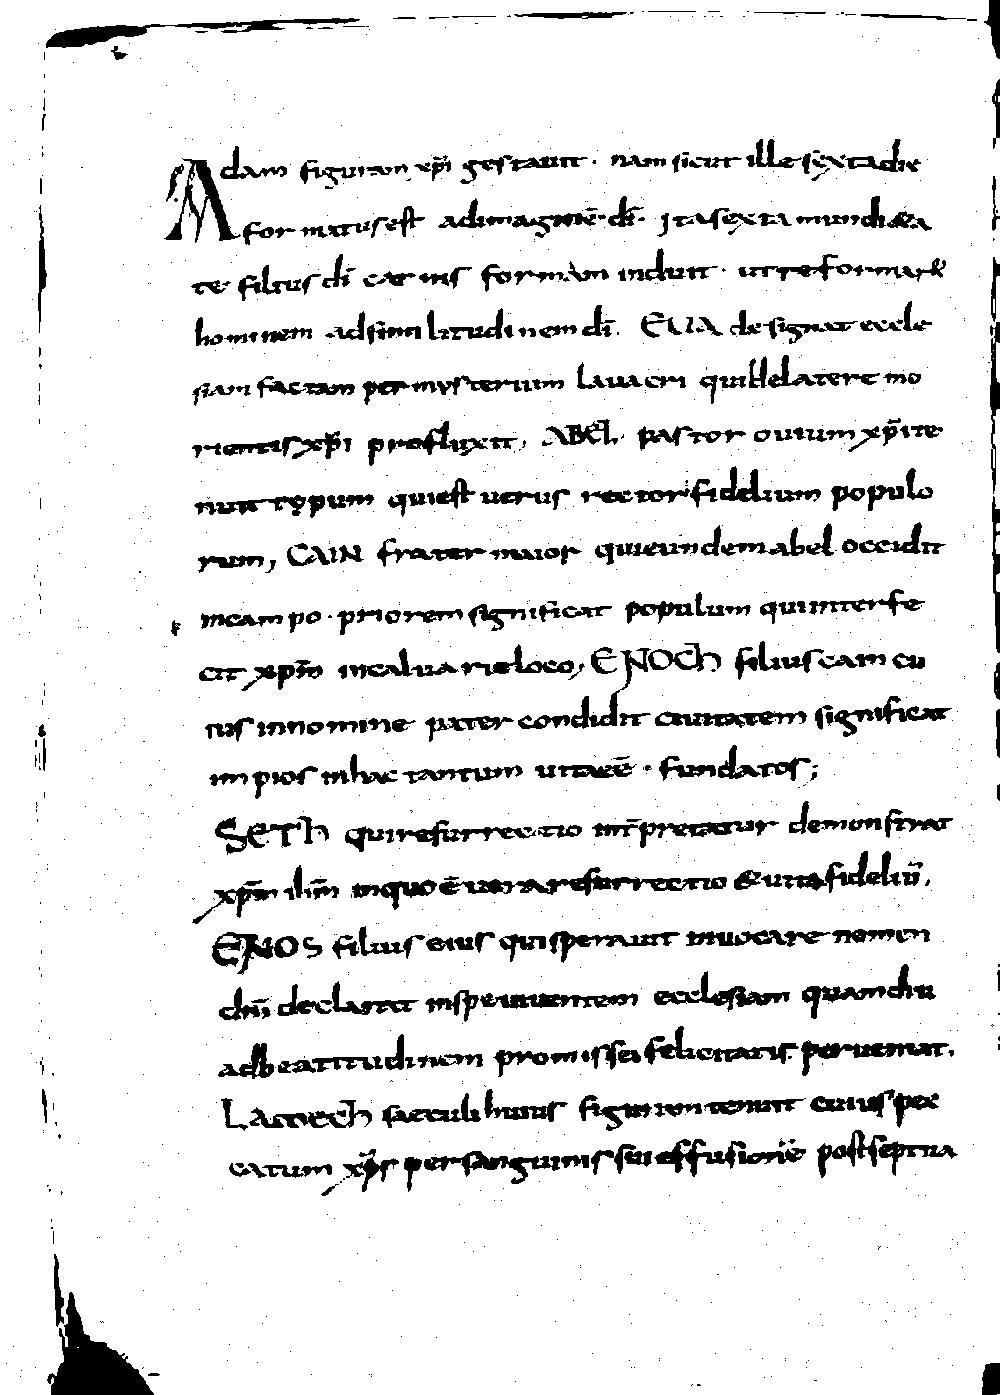 Adam figuram xp̄i gestauit · nam sicut ille sexta die
formatus est ad imaginē dī · Ita sexta mundi aeta
te filius dī carnis formam induit · ut reformaret
hominem ad similitudinem dī. EUA designat eccle
siam factam per mysterium lauacri qui de latere mo
rientis xp̄i profluxit, ABEL pastor ouium xp̄i te
nuit typum qui est uerus rector fidelium populo
rum, CAIN frater maior qui eundem abel occidit
in campo · priorem significat populum qui interfe
cit xp̄m in caluariae loco, ENOCH filius cain cu
ius in nomine pater condidit ciuitatem significat
impios in hac tantum uita eē · fundatos;
SETH qui resurrectio int̄pretatur demonstrat
xp̄m ih̄m in quo ē uera resurrectio & uita fideliū,
ENOS filius eius qui sperauit inuocare nomen
dn̄i declarat in spe uiuentem ecclesiam quamdiu
ad beatitudinem promissae felicitatis perueniat,
LAMECH saeculi huius figuram tenuit cuius pec
catum xp̄s per sanguinis sui effusionē post septua